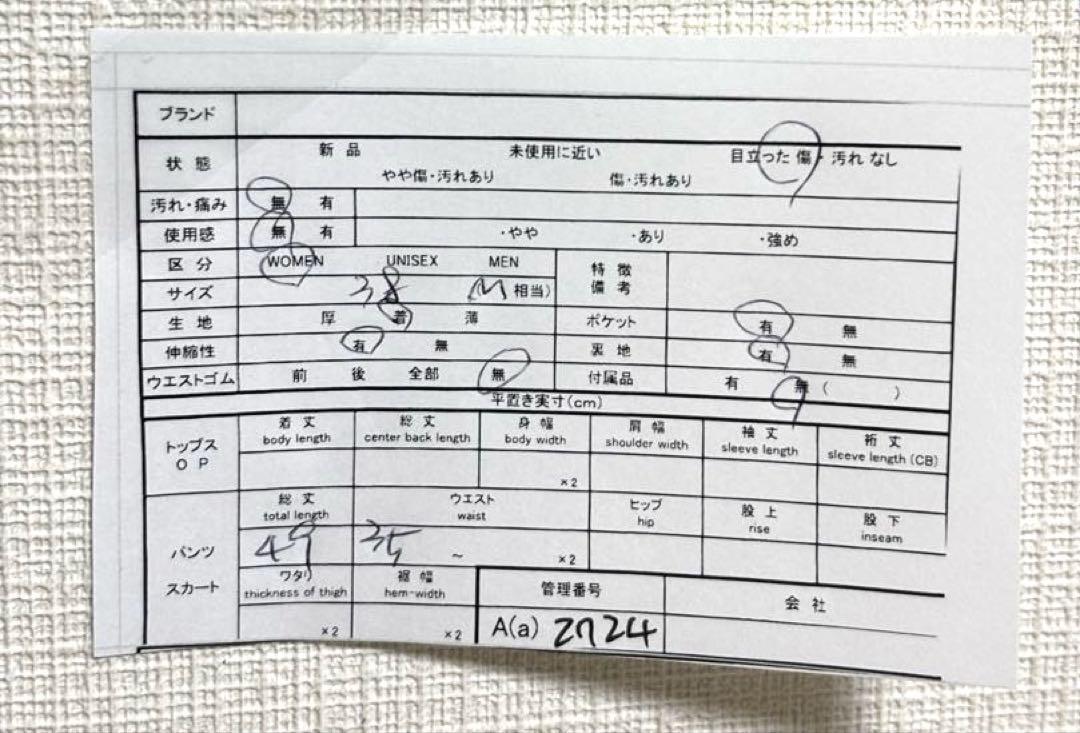 ブランド
状態 新品 未使用に近い 目立った傷・汚れなし
やや傷・汚れあり 傷・汚れあり
汚れ・痛み 無 有
使用感 無 有 ・やや ・あり ・強め
区分 WOMEN UNISEX MEN 特徴
備考
サイズ 38 M 相当)
生地 厚 着 薄 ポケット 有 無
伸縮性 有 無 裏地 有 無
ウエストゴム 前 後 全部 無 付属品 有 無 ( )
平置き実寸(cm)
トップス
OP
着丈 総丈 身幅 肩幅 袖丈 裄丈
body length center back length body width shoulder width sleeve length sleeve length (CB)
×2
パンツ
スカート
総丈 ウエスト ヒップ 股上 股下
total length waist hip rise inseam
49 35 ~ ×2
ワタリ 裾幅 管理番号 会社
thickness of thigh hem-width
×2 ×2 A(a) 2724